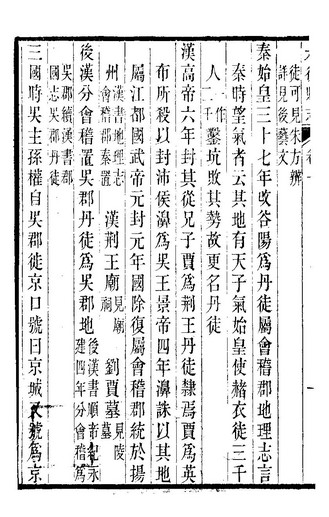 徒可見朱方辨
詳見後藝文
秦始皇三十七年改谷陽爲丹徒屬會稽郡地理志言
秦時望氣者云其地有天子氣始皇使赭衣徒三千
人一作二千鑿坑敗其勢故更名丹徒
漢高帝六年封其從兄子賈爲荆王丹徒隸焉賈爲英
布所殺以封沛侯濞爲吳王景帝四年濞誅以其地
屬江都國武帝元封元年國除復屬會稽郡統於揚
州漢書地理志會稽郡秦置 漢荆王廟見廟祠 劉賈墓見陵墓
後漢分會稽置吳郡丹徒爲吳郡地後漢書順帝紀永建四年分會稽爲
吳郡續漢書郡
國志吳郡丹徒
三國時吳主孫權自吳郡徙京口號曰京城又號爲京